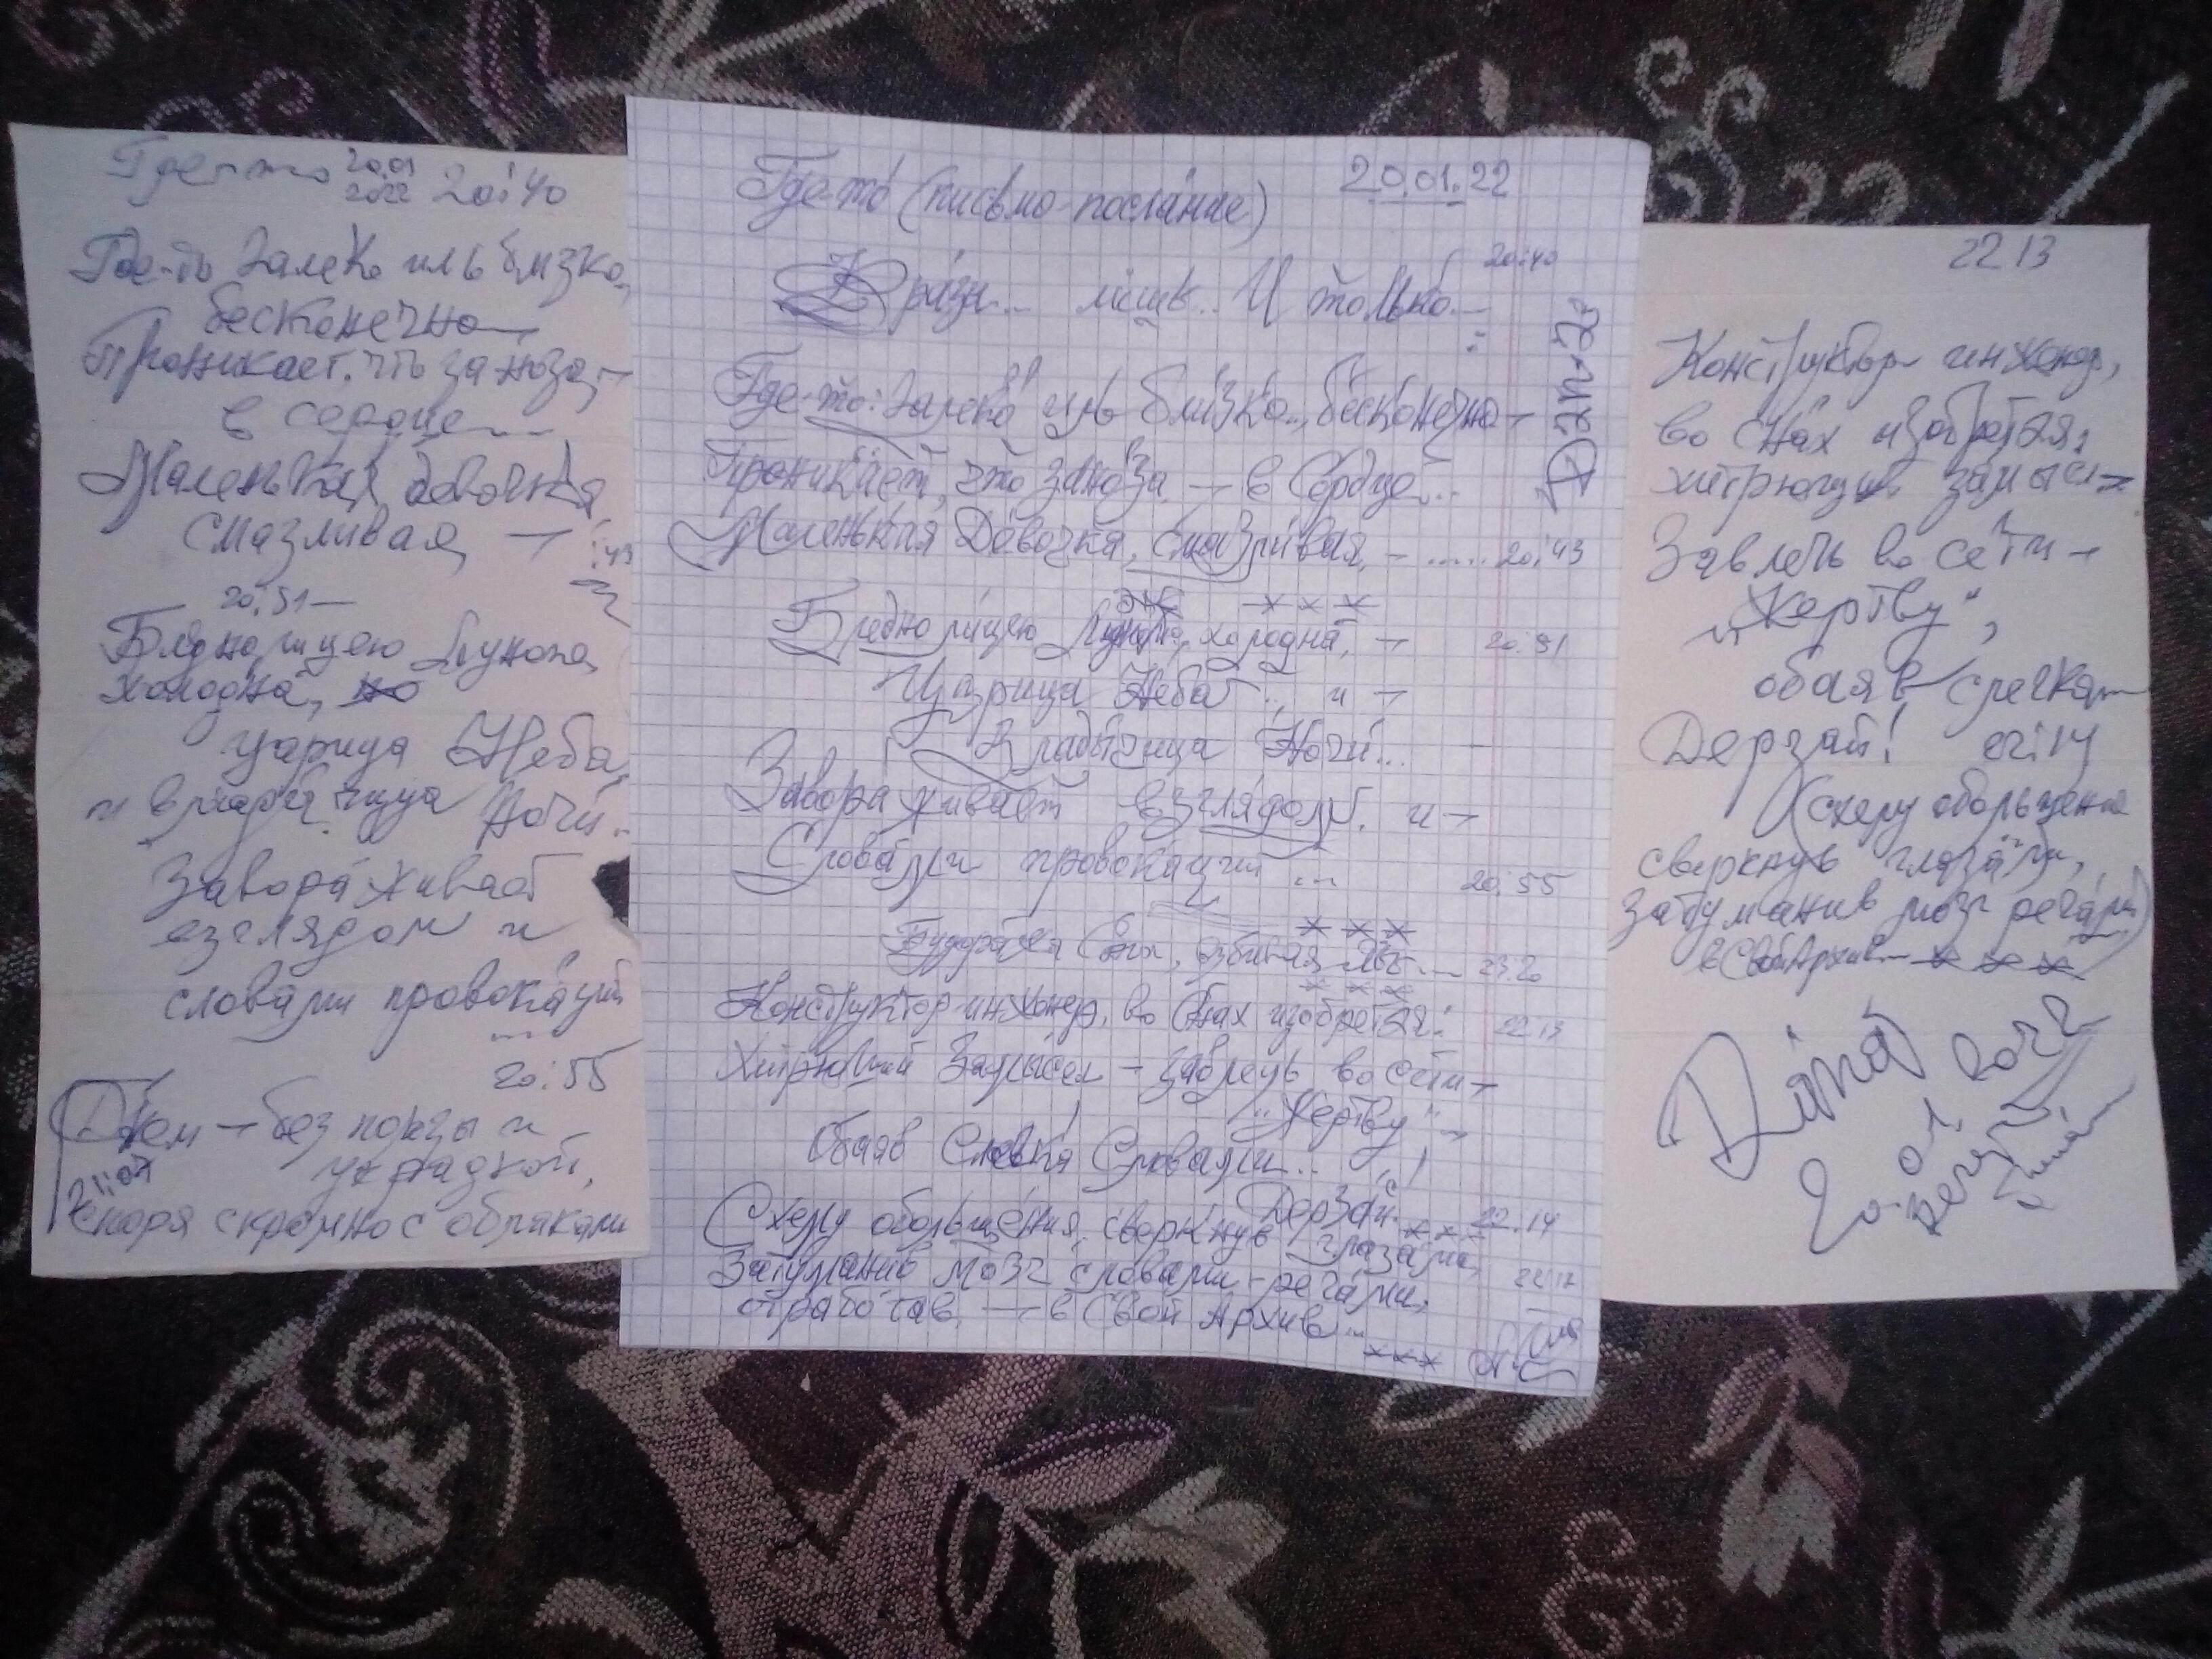 Где-то 20.01 2022 20:40
Где-то далеко иль близко,
бесконечно
Проникает, что заноза, –
в сердце...
Маленькая девочка
смазливая, –
20:51 –
Бледнолицею Луною,
холодна, но
царица Неба,
и владычица Ночи...
Завораживает
взглядом и
словами провокаций
...
20:55
Днём – без позы и
украдкой,
21:07
споря скромно с облаками
Где-то (письмо-послание) 20.01.22
20:40
Фразы... И только...
Где-то: далеко иль близко..., бесконечно –
Проникает, что заноза, – в Сердце...
Маленькая Девочка, смазливая, – ..... 20:43
* * *
Бледнолицею Луною, холодна, – 20:51
Царица Неба.., и –
Владычица Ночи...
Завораживает взглядом, и –
Словами провокаций ... 20:55
* * *
Сны, 23.20
* * *
Конструктор-инженер, во Снах изобретая: 22:13
Хитрющий Замысел – завлечь во сети –
"Жертву" –
Обаяв Слегка Словами...
Дерзай! 22:14
* * *
Схему обольщения, сверкнув глазами,
Затуманив мозг словами-речами, 22:17
отработав, – в Свой Архив...
* * *
22 13
Конструктор инженер,
во снах изобретая:
хитрющий замысел
Завлечь во сети –
"Жертву",
обаяв слегка
Дерзай! 22:14
(схему обольщения
сверкнув глазами,
Затуманив мозг речами)
в Свой Архив... * * *
Diна
20.01 2022
вечер